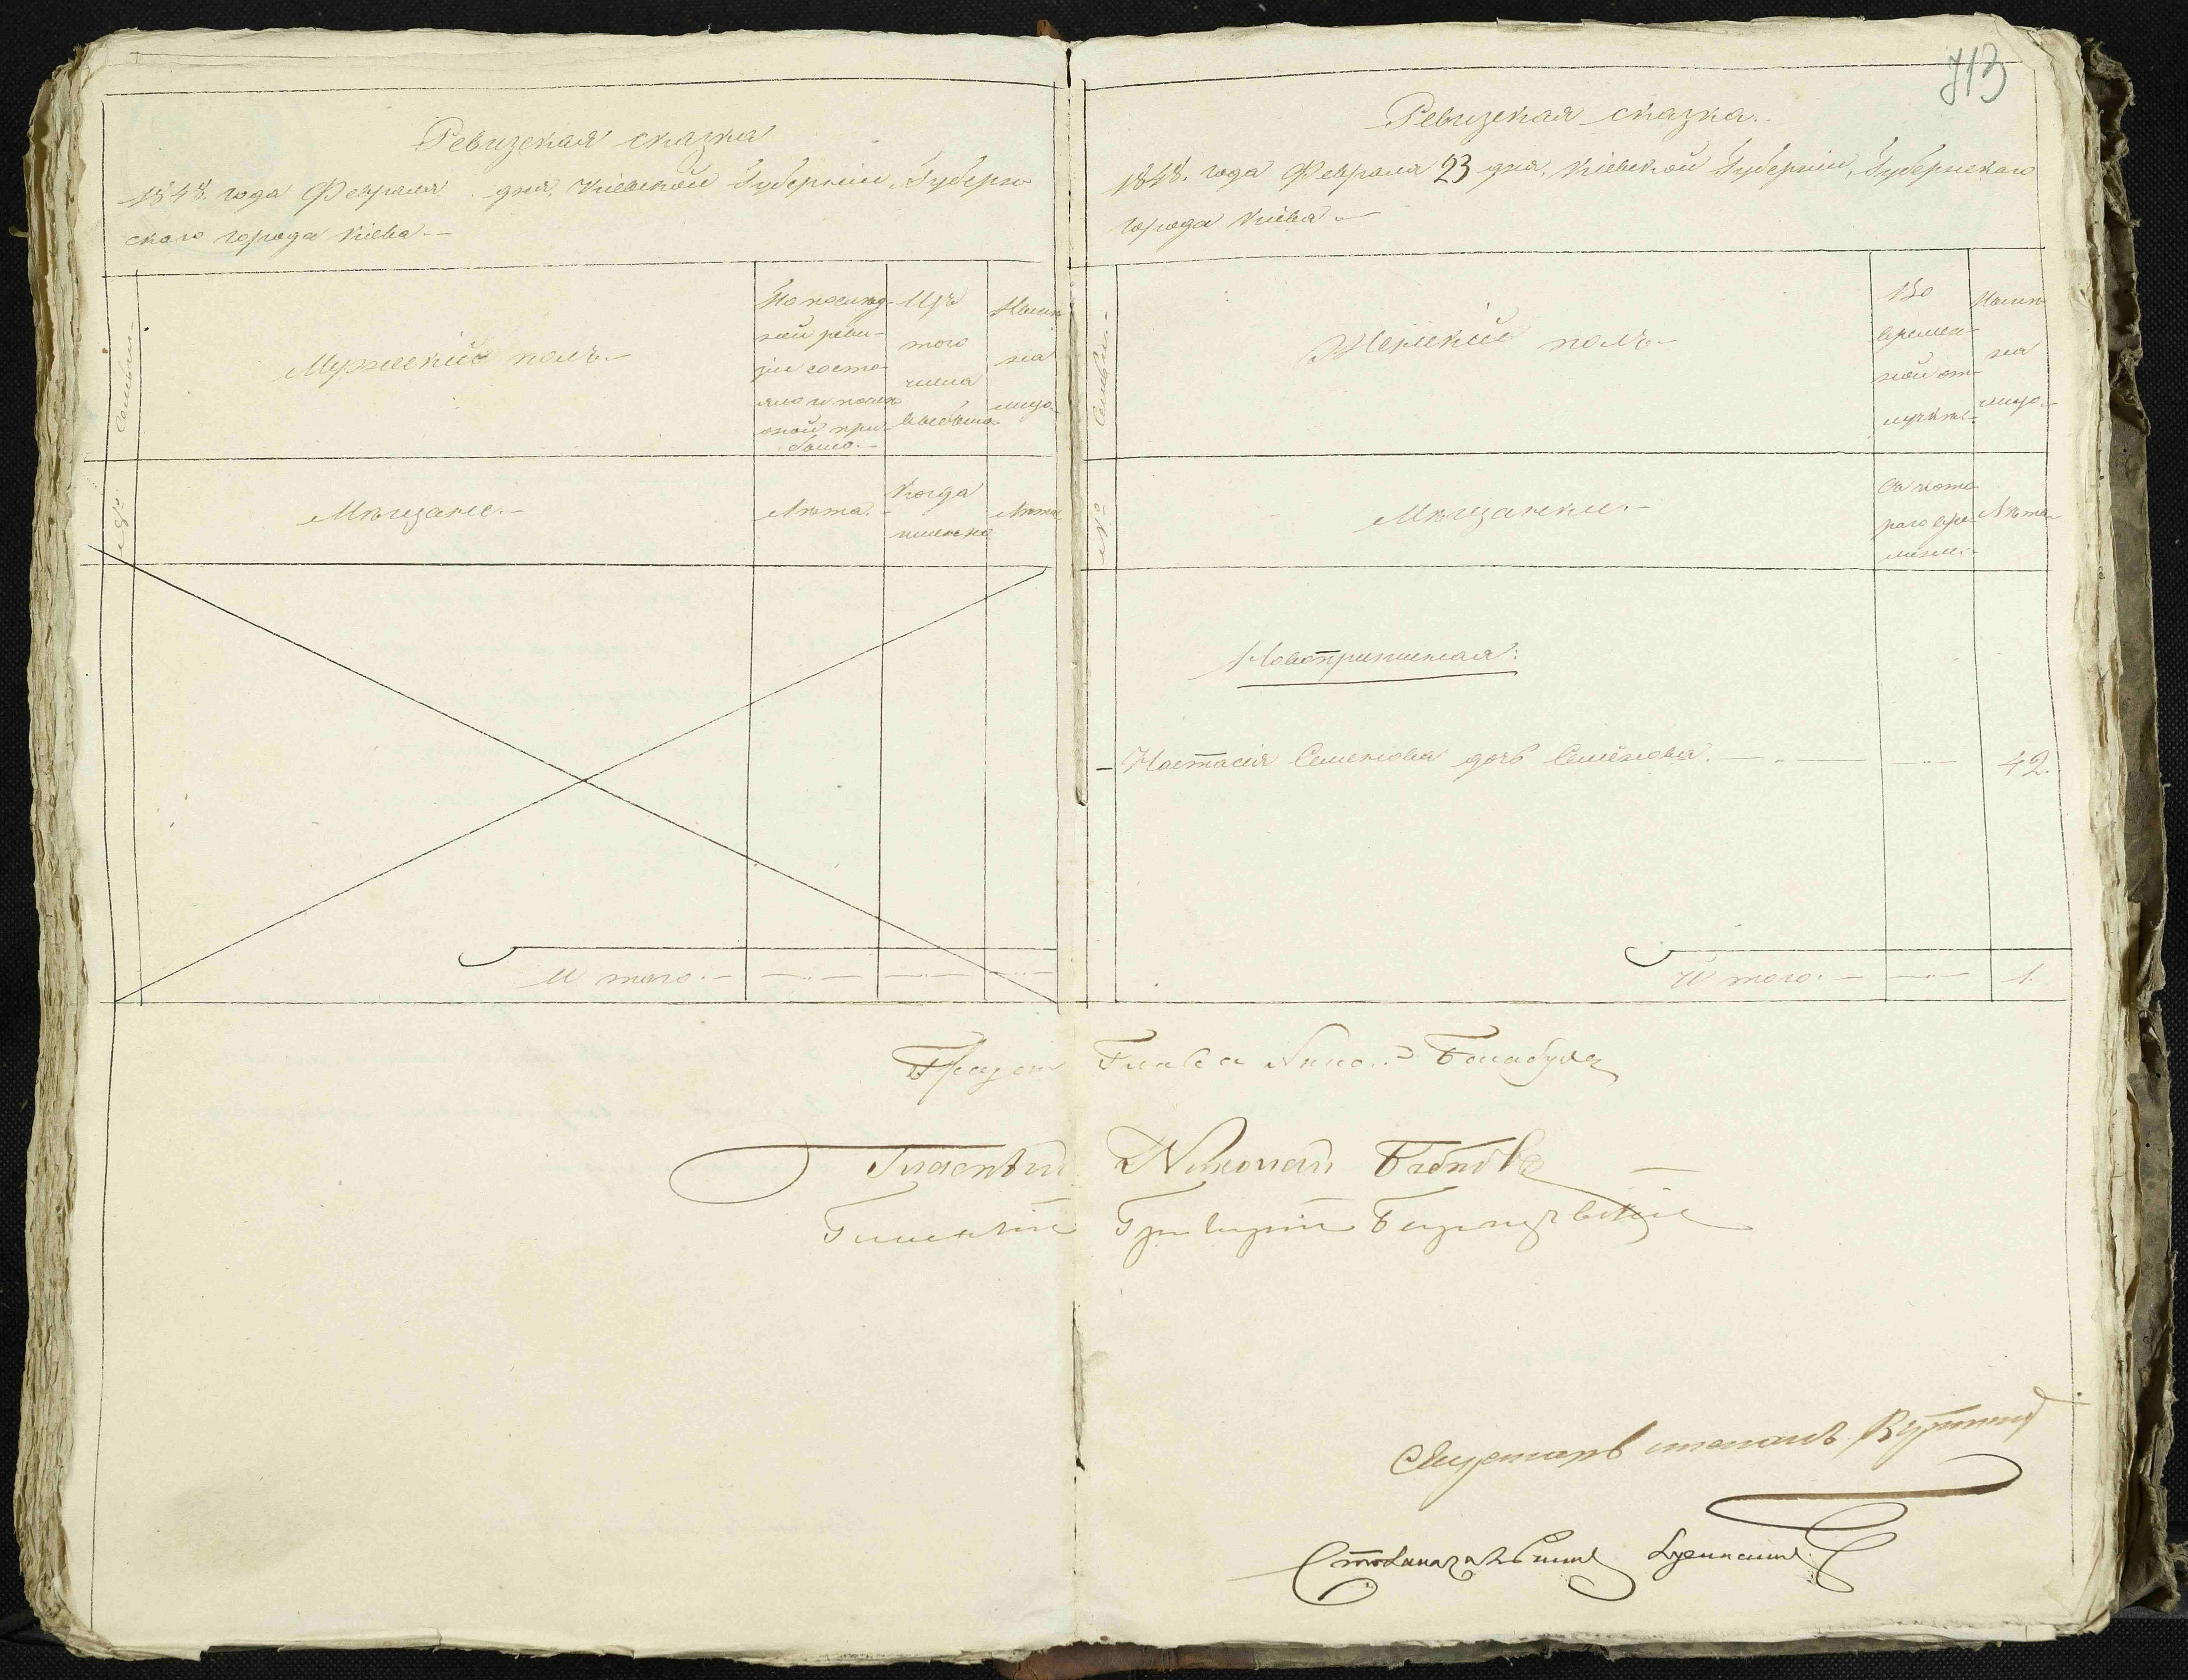 713
Ревизская сказка
1848. года Февраля дня, Кіевской Губерніи, Губерн
скаго города Кіева.—
№ Семьи.—
Мужескій полъ.—
По послѣд-
ней реви-
зіи состо-
яло и послѣ
оной при-
было.—
Изъ
того
числа
выбыло
Нынѣ
на
лицо.
Мѣщане.—
Лѣта.
Когда
именно
Лѣта
И того.—
Ревизская сказка.
1848. года Февраля 23 дня, Кіевской Губерніи, Губернскаго
города Кіева
№ Семьи.—
Женскій полъ.—
Во
времен-
ной от-
лучкѣ.
Нынѣ
на
лицо.—
Мѣщанки.—
Съ кото
раго вре-
мени.—
Лѣта
Новоприписная:
— Настасія Семенова дочь Семёнова. 42.
И того. — 1.
Градск Глава Балабуха
Гласный Николай Бобковъ
Гласный Григорій
Секретарь
Столоначальникъ